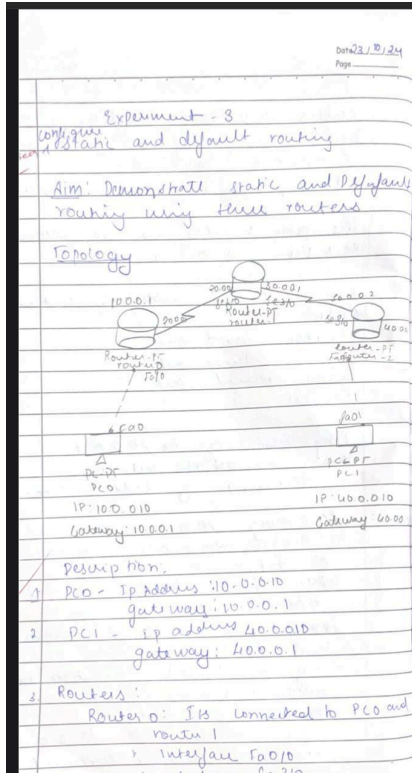 Date 23/10/24
Page
Experiment - 3
Configure
static and default routing
Aim: Demonstrate static and Default
routing using three routers
Topology
10.0.0.1
Router-PT
router 1
Router-PT
router 0
Fa0/0
Router-PT
Fa0
PC-PT
PC0
PC-PT
PC1
IP: 10.0.010
IP: 40.0.010
Gateway: 10.0.1
Gateway: 40.00
Description:
1 PC0 - Ip Address: 10.0.0.10
gateway: 10.0.0.1
2 PC1 - ip address 40.0.010
gateway: 40.0.0.1
3. Routers:
Router 0: Its connected to PC0 and
router 1
Interface Fa0/0